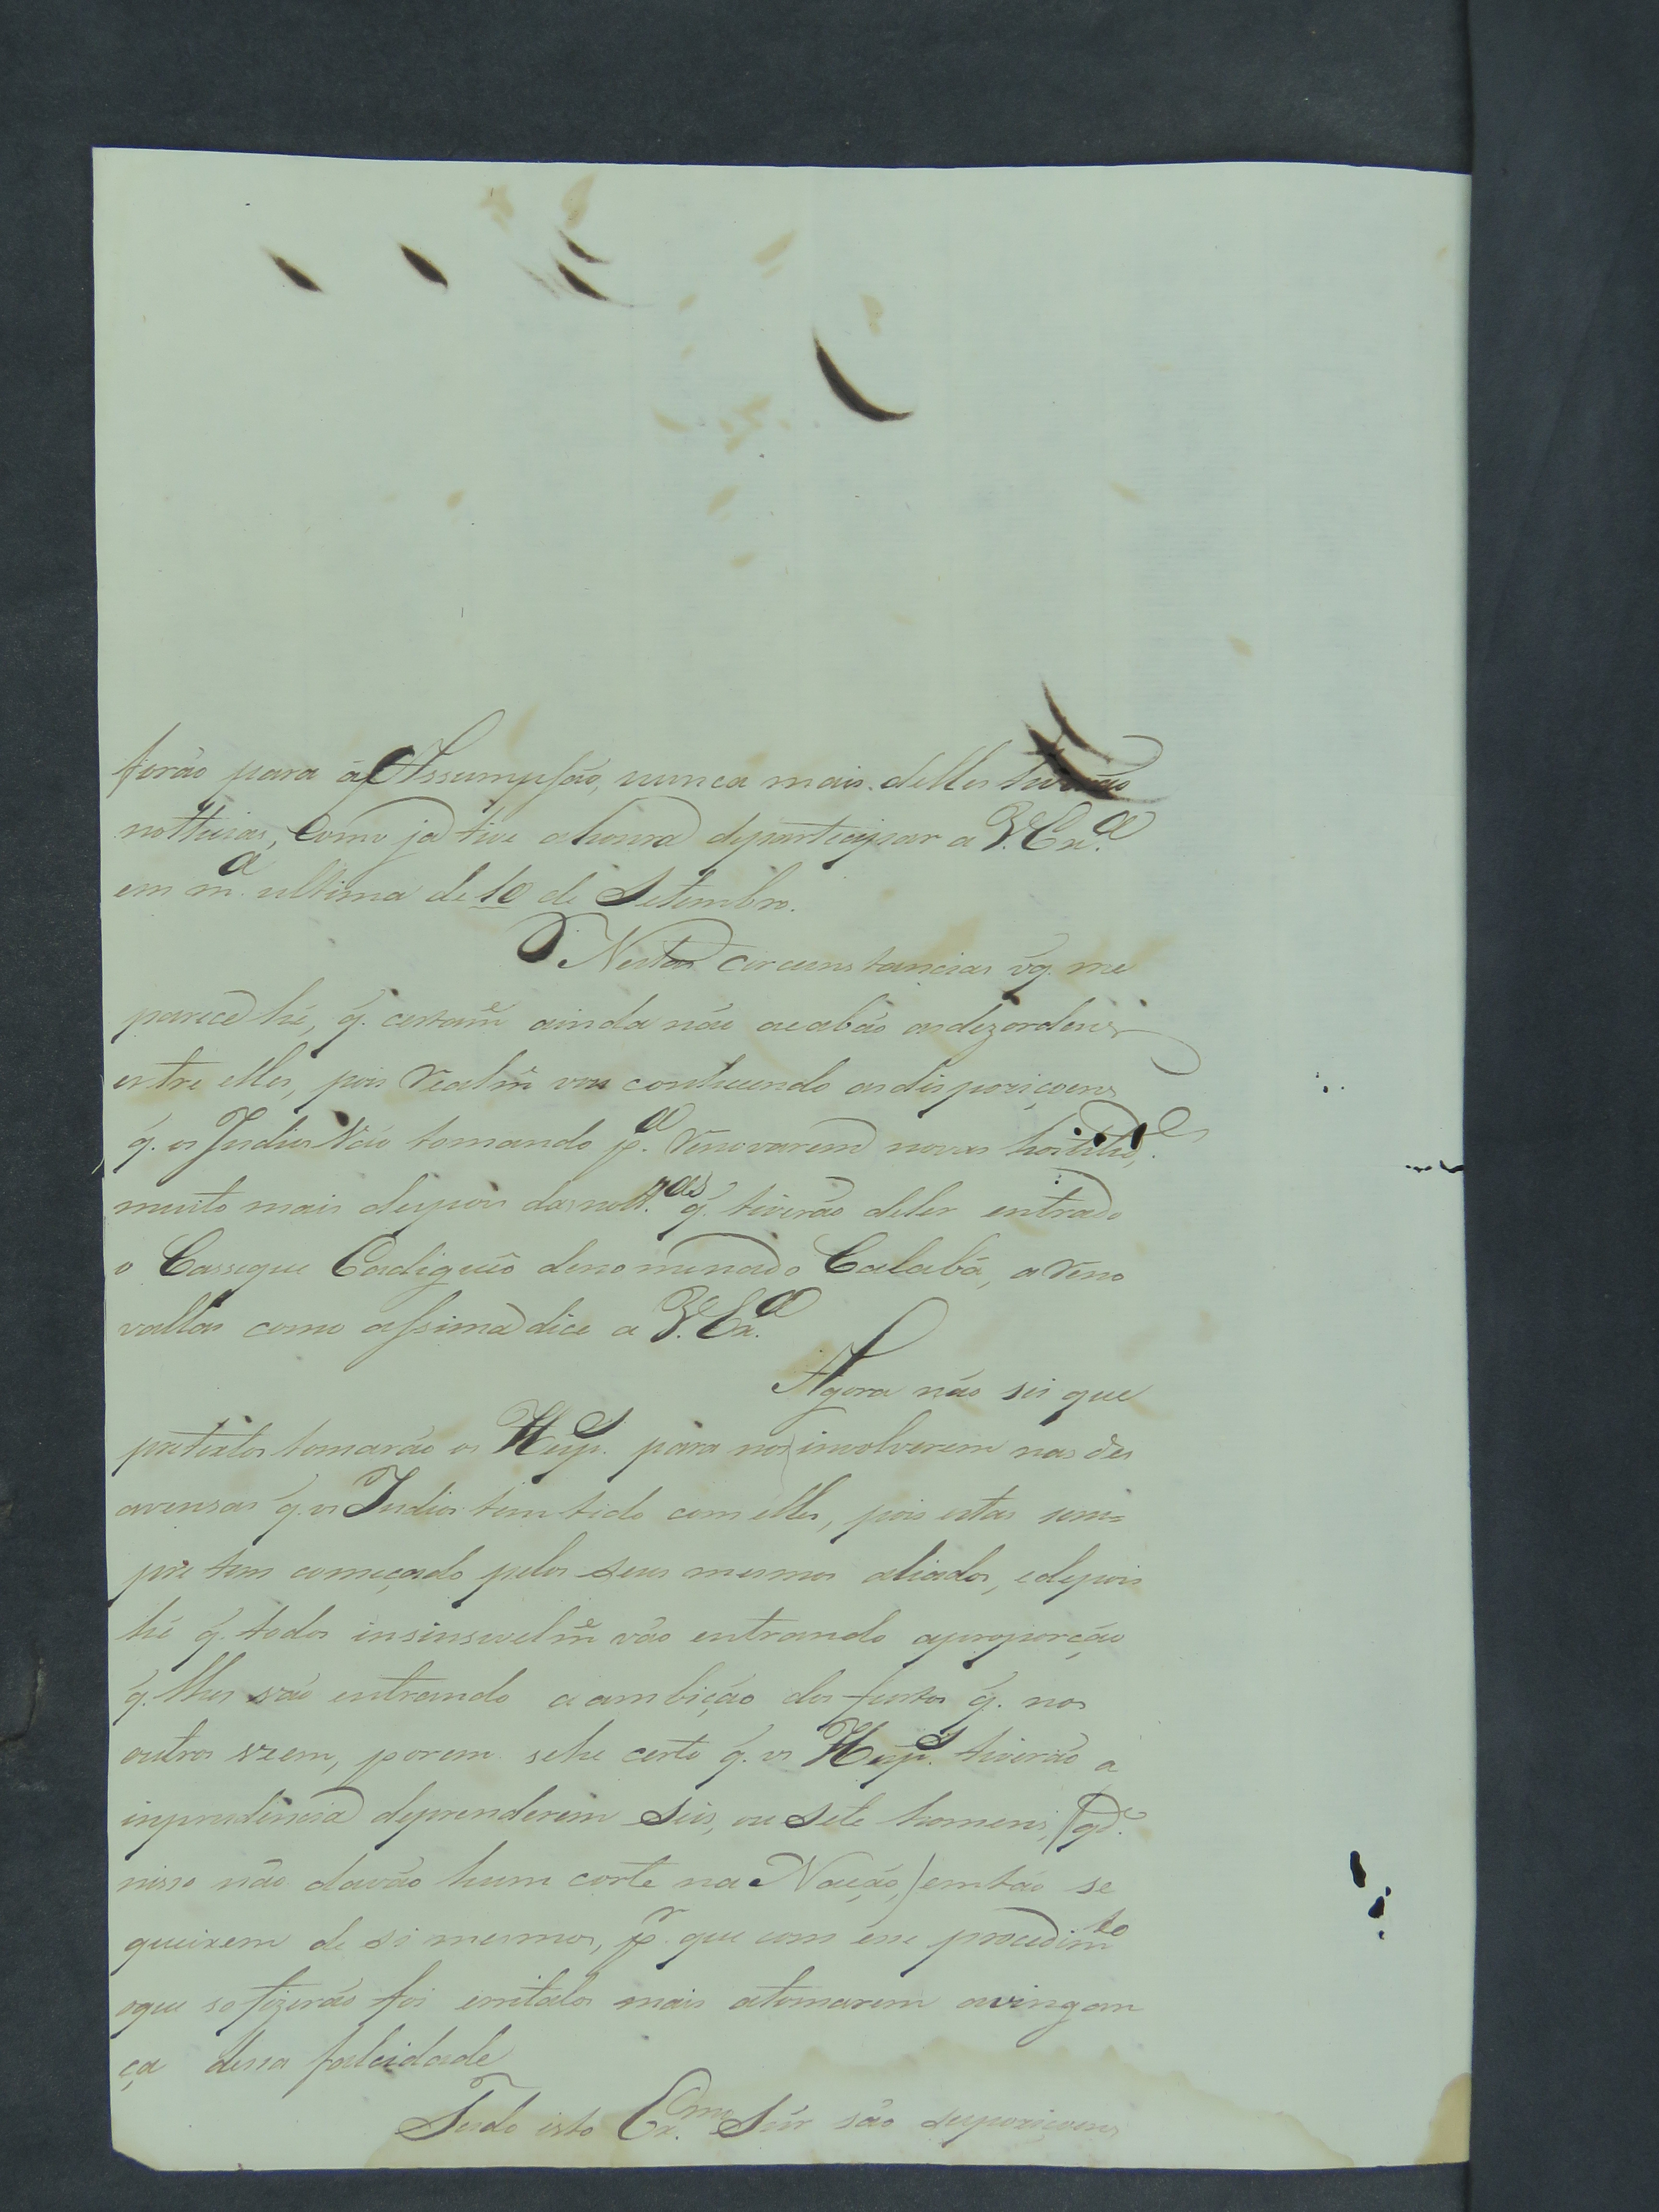 forão para a Assumpsão, nunca mais delles tiverão
nottisias, Como já tive ahonra departicipar a V. Ex.ª
em m.ª ultima de 10 de Setembro.
Nestas circunstancias oq. me
parece hé, q. certam.e ainda não acabão asdezordens
entre elles, pois realm.e vou conhecendo as disposiçoens
q. os Indios vão tomando p.ª renovarem novas hostilid.es,
muito mais depois das nott.as q. tiverão deler entrado
o Cassique Cadiguêo denominado Calabá, a reno
valles como assima dice a V. Ex.ª
Agora não sei que
pretextos tomarão os Hesp.s para nos involverem nas des
avensas q. os Indios tem tido com elles, pois estas sem=
pre tem começado pelos seus mesmos aliados, edepois
hé q. todos insinsivelm.e vão entrando aproporção
q. lhes vão entrando a ambição dos furtos q. nos
outros vzem, porem sehe certo q. os Hesp.s tiverão a
inprudencia deprenderem Seis, ou Sete homens, (q.do
nisso não davão hum corte na Nação,) emtão se
queixem de si mesmos, p.r que com esse procedim.to
oque só fizerão foi irritalos mais atomarem avingan
ça dessa falcidade
Tudo isto Ex.mo Snr são suposiçoens